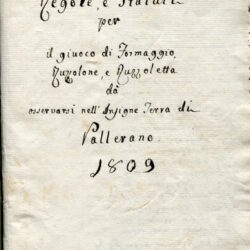 Regole, e Statuti
per
il giuoco di Formaggio,
Ruzzolone, e Ruzzoletta
dà
osservarsi nell'Insigne Terra di
Vallerano
1809